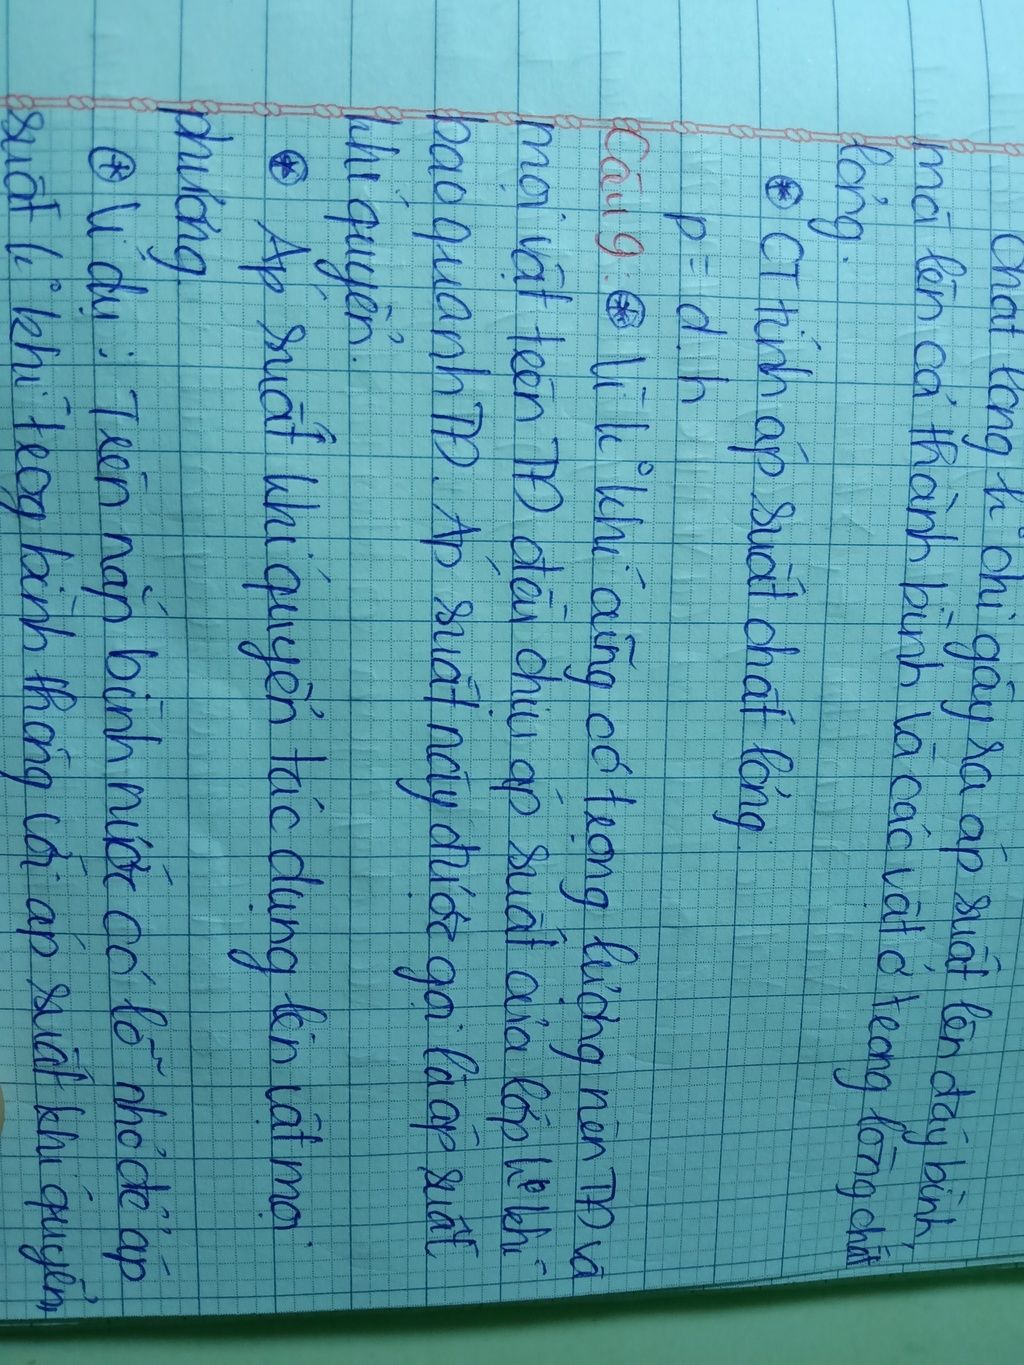 Chất lỏng k° chỉ gây ra áp suất lên đáy bình,
mà lên cả thành bình và các vật ở trong lòng chất
lỏng.
⊛ CT tính áp suất chất lỏng.
p = d.h
Câu 9: ⊛ Vì k° khí cũng có trọng lượng nên TĐ và
mọi vật trên TĐ đều chịu áp suất của lớp k° khí
bao quanh TĐ. Áp suất này được gọi là áp suất
khí quyển.
⊛ Áp suất khí quyển tác dụng lên vật mọi
phương.
⊛ Ví dụ: Trên nắp bình nước có lỗ nhỏ để áp
suất k° khí trog bình thông với áp suất khí quyển,